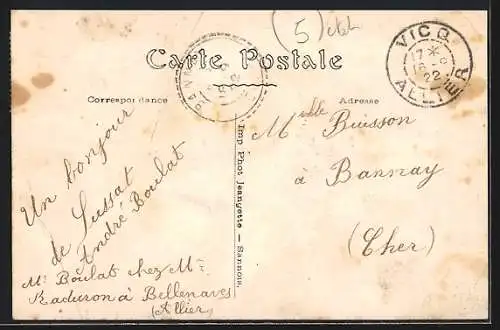 5
Carte Postale
VICQ
17 *
16 - 8
22
ALLIER
Correspondance
Adresse
Un bonjour
de Lussat
André Boulat
Mr Boulat chez Mr
Raduron à Bellenaves
(Allier)
Imp Phot Jeangette - Sannois.
Mlle Buisson
à Bannay
(Cher)